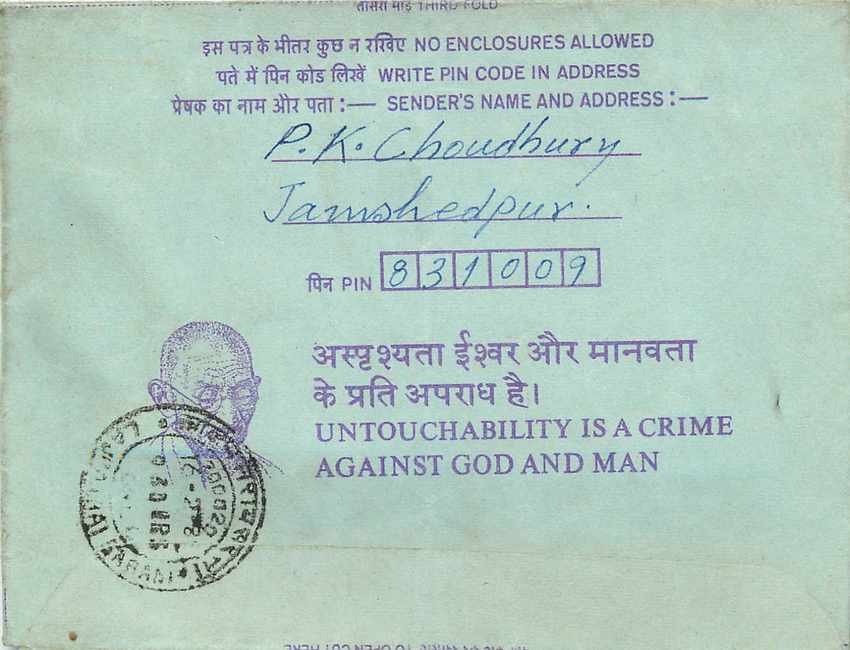 तीसरा मोड़ THIRD FOLD
इस पत्र के भीतर कुछ न रखिए NO ENCLOSURES ALLOWED
पते में पिन कोड लिखें WRITE PIN CODE IN ADDRESS
प्रेषक का नाम और पता :— SENDER'S NAME AND ADDRESS :—
P. K. Choudhury
Jamshedpur.
पिन PIN 831009
अस्पृश्यता ईश्वर और मानवता
के प्रति अपराध है।
UNTOUCHABILITY IS A CRIME
AGAINST GOD AND MAN
700020
TO OPEN CUT HERE